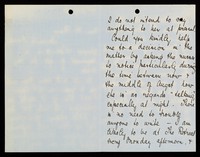 I do not intend to say
anything to her at present
Could you kindly help
me to a decision in the
matter by asking the nurses
to notice particularly during
the time between now &
the middle of August how
she is as regards settling
especially at night. There
is no need to trouble
anyone to write - I am
likely to be at the
Monday afternoon, &